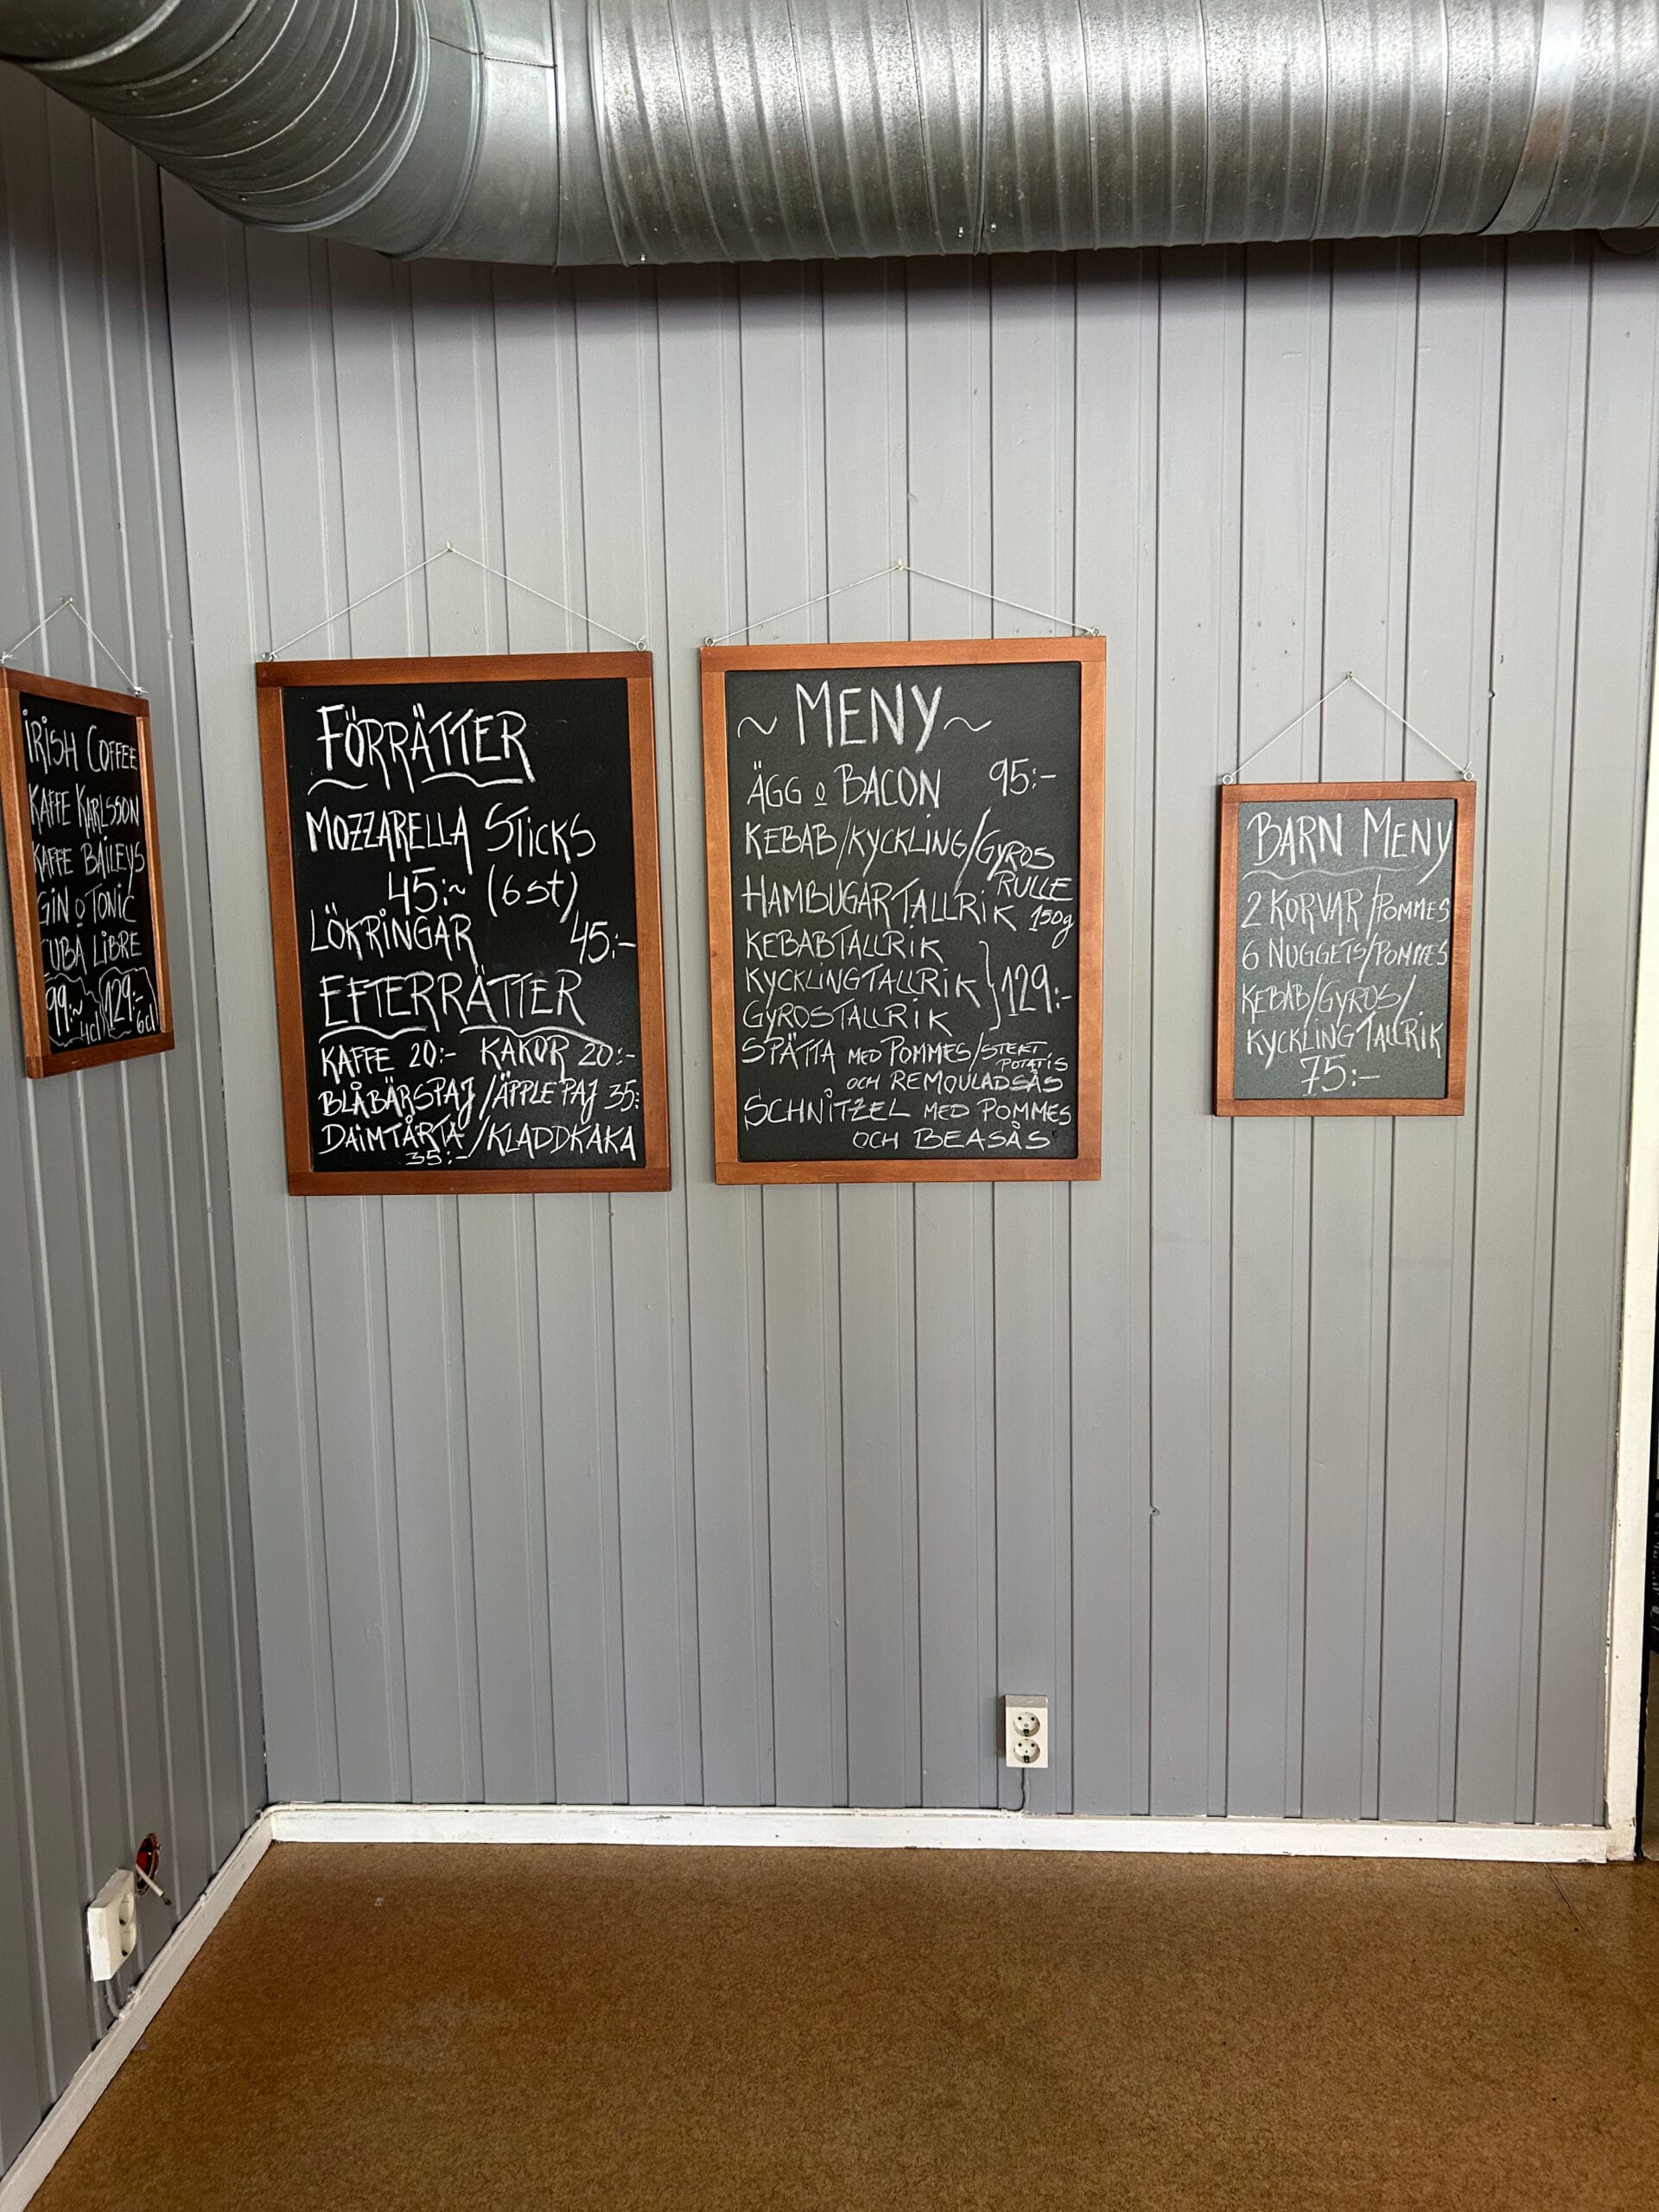 IRISH COFFEE
KAFFE KARLSSON
KAFFE BAILEYS
GIN O TONIC
CUBA LIBRE
99:~ 4cl 129:- 6cl
FÖRRÄTTER
MOZZARELLA STICKS
45:~ (6st)
LÖKRINGAR 45:-
EFTERRÄTTER
KAFFE 20:- KAKOR 20:-
BLÅBÄRSPAJ/ÄPPLEPAJ 35:
DAIMTÅRTA/KLADDKAKA
35:-
~ MENY ~
ÄGG o BACON 95:-
KEBAB/KYCKLING/GYROS
RULLE
HAMBUGARTALLRIK 150g
KEBABTALLRIK
KYCKLINGTALLRIK } 129:-
GYROSTALLRIK
SPÄTTA MED POMMES/STEKT
POTATIS
OCH REMOULADSÅS
SCHNITZEL MED POMMES
OCH BEASÅS
BARN MENY
2 KORVAR/POMMES
6 NUGGETS/POMMES
KEBAB/GYROS/
KYCKLING TALLRIK
75:-